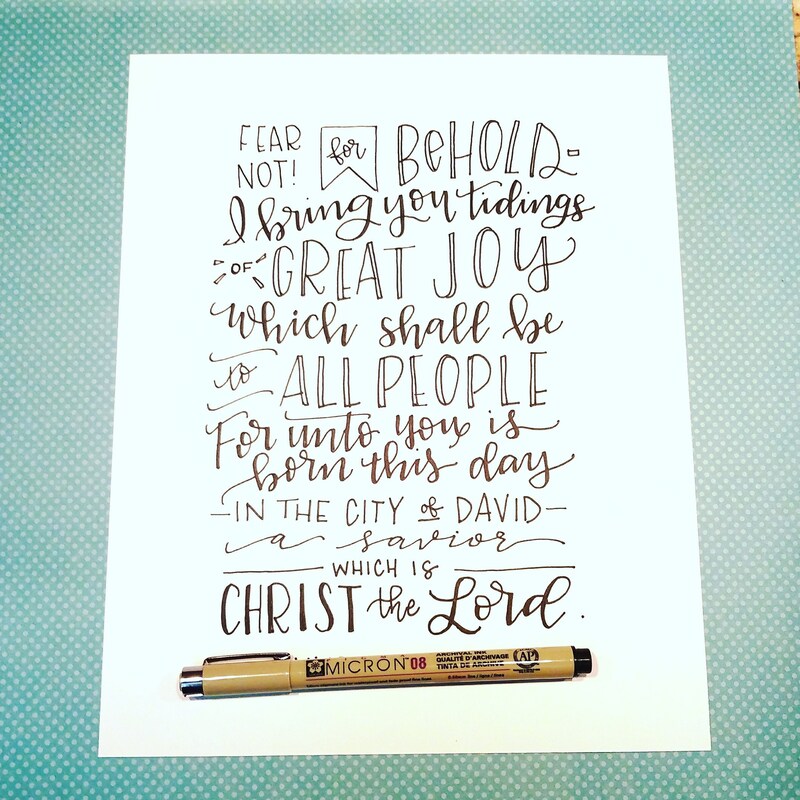 FEAR NOT! for BEHOLD-
I bring you tidings
OF GREAT JOY
which shall be
to ALL PEOPLE
For unto you is
born this day
-IN THE CITY of DAVID-
a savior
WHICH IS
CHRIST the Lord.
MICRON 08
ARCHIVAL INK
QUALITÉ D'ARCHIVAGE
TINTA DE ARCHIVE
AP